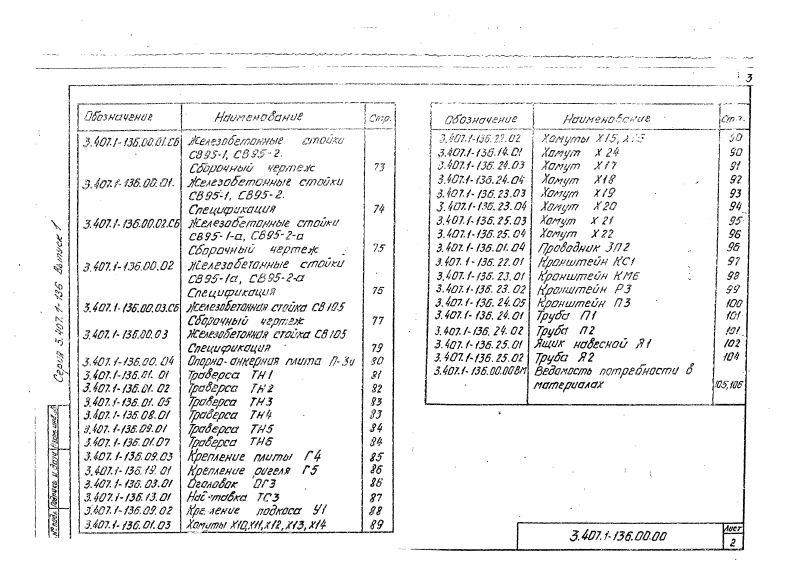 3
Обозначение Наименование Стр.
3.407.1-136.00.01.СБ Железобетонные стойки
СВ95-1, СВ95-2.
Сборочный чертеж 73
3.407.1-136.00.01. Железобетонные стойки
СВ95-1, СВ95-2.
Спецификация 74
3.407.1-136.00.02.СБ Железобетонные стойки
СВ95-1-а, СВ95-2-а
Сборочный чертеж 75
3.407.1-136.00.02 Железобетонные стойки
СВ95-1а, СВ95-2-а
Спецификация 76
3.407.1-136.00.03.СБ Железобетонная стойка СВ105
Сборочный чертеж 77
3.407.1-136.00.03 Железобетонная стойка СВ105
Спецификация 79
3.407.1-136.00.04 Опорно-анкерная плита П-3и 80
3.407.1-136.01.01 Траверса ТН1 81
3.407.1-136.01.02 Траверса ТН2 82
3.407.1-136.01.05 Траверса ТН3 83
3.407.1-136.08.01 Траверса ТН4 83
3.407.1-136.09.01 Траверса ТН5 84
3.407.1-136.01.07 Траверса ТН6 84
3.407.1-136.09.03 Крепление плиты Г4 85
3.407.1-136.19.01 Крепление ригеля Г5 86
3.407.1-136.03.01 Оголовок ОГ3 86
3.407.1-136.13.01 Надставка ТС3 87
3.407.1-136.09.02 Крепление подкоса У1 88
3.407.1-136.01.03 Хомуты Х10,Х11,Х12,Х13,Х14 89
Обозначение Наименование Стр.
3.407.1-136.22.02 Хомуты Х15, 90
3.407.1-136.14.01 Хомут Х24 90
3.407.1-136.24.03 Хомут Х17 91
3.407.1-136.24.04 Хомут Х18 92
3.407.1-136.23.03 Хомут Х19 93
3.407.1-136.23.04 Хомут Х20 94
3.407.1-136.25.03 Хомут Х21 95
3.407.1-136.25.04 Хомут Х22 96
3.407.1-136.01.04 Проводник ЗП2 96
3.407.1-136.22.01 Кронштейн КС1 97
3.407.1-136.23.01 Кронштейн КМ6 98
3.407.1-136.23.02 Кронштейн Р3 99
3.407.1-136.24.05 Кронштейн П3 100
3.407.1-136.24.01 Труба П1 101
3.407.1-136.24.02 Труба П2 101
3.407.1-136.25.01 Ящик навесной Я1 102
3.407.1-136.25.02 Труба Я2 104
3.407.1-136.00.00ВМ Ведомость потребности в
материалах 105,106
Серия 3.407.1-136 Выпуск 1
Инв.№ подл. Подпись и дата Взам.инв.№
3.407.1-136.00.00
Лист
2